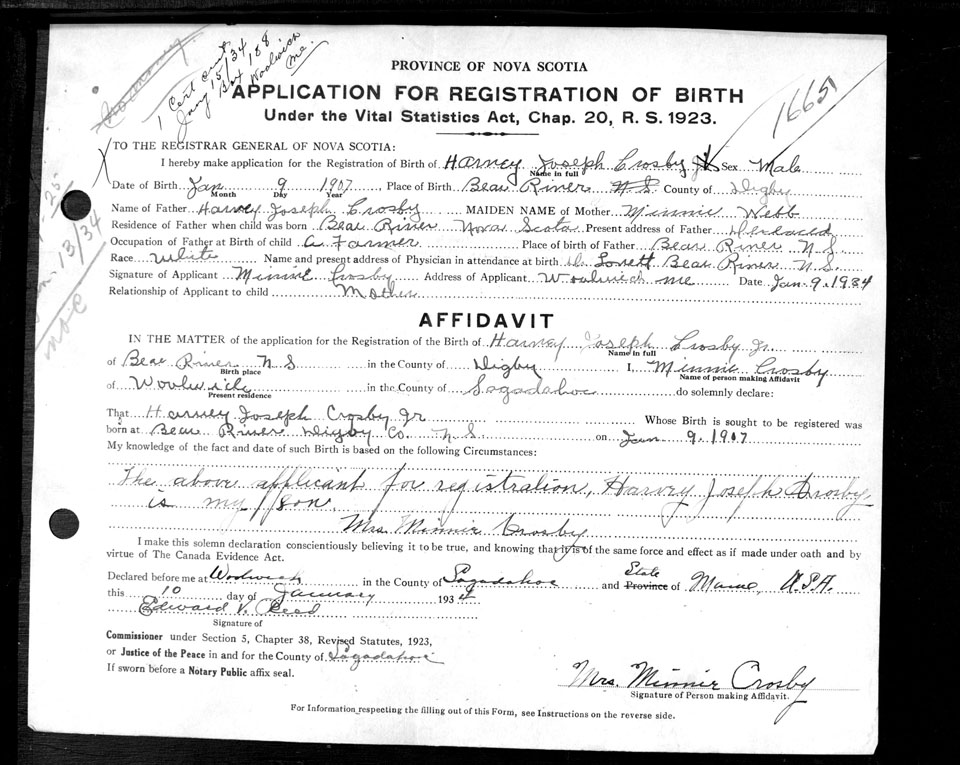 1 Cert sent
Jany 15/34
Box 188
Woolwich
Me.
16651
PROVINCE OF NOVA SCOTIA
APPLICATION FOR REGISTRATION OF BIRTH
Under the Vital Statistics Act, Chap. 20, R. S. 1923.
TO THE REGISTRAR GENERAL OF NOVA SCOTIA:
I hereby make application for the Registration of Birth of Harvey Joseph Crosby Jr Sex Male
Name in full
Date of Birth Jan 9 1907 Place of Birth Bear River N S County of Digby
Month Day Year
Name of Father Harvey Joseph Crosby MAIDEN NAME of Mother Minnie Webb
Residence of Father when child was born Bear River Nova Scotia Present address of Father Deceased
Occupation of Father at Birth of child A Farmer Place of birth of Father Bear River N. S.
Race White Name and present address of Physician in attendance at birth Dr Lovett Bear River N. S.
Signature of Applicant Minnie Crosby Address of Applicant Woolwich me Date Jan. 9. 1934
Relationship of Applicant to child Mother
13/34
AFFIDAVIT
IN THE MATTER of the application for the Registration of the Birth of Harvey Joseph Crosby Jr.
Name in full
of Bear River N S in the County of Digby I, Minnie Crosby
Birth place Name of person making Affidavit
of Woolwich in the County of Sagadahoc do solemnly declare:
Present residence
That Harvey Joseph Crosby Jr Whose Birth is sought to be registered was
born at Bear River Digby Co. N. S. on Jan 9. 1907
My knowledge of the fact and date of such Birth is based on the following Circumstances:
The above applicant for registration, Harvey Joseph Crosby
is my son.
Mrs. Minnie Crosby
I make this solemn declaration conscientiously believing it to be true, and knowing that it is of the same force and effect as if made under oath and by
virtue of The Canada Evidence Act.
State
Declared before me at Woolwich in the County of Sagadahoc and Province of Maine, U.S.A.
this 10 day of January 1934
Edward V. Reed
Signature of
Commissioner under Section 5, Chapter 38, Revised Statutes, 1923,
or Justice of the Peace in and for the County of Sagadahoc
If sworn before a Notary Public affix seal.
Mrs. Minnie Crosby
Signature of Person making Affidavit.
For Information respecting the filling out of this Form, see Instructions on the reverse side.